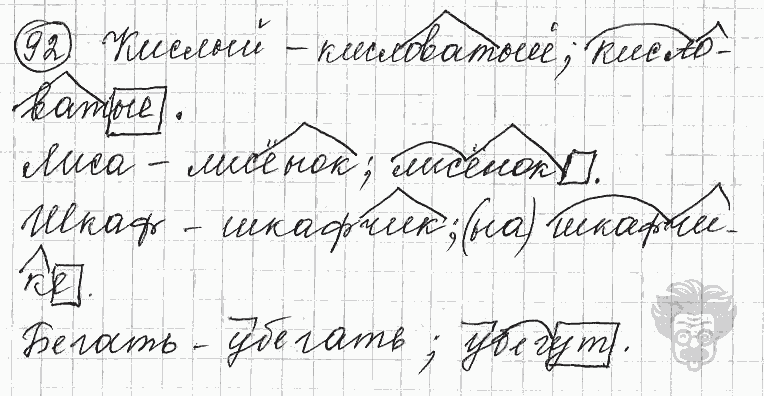 92 Кислый – кисловатый; кисло-
ватые.
Лиса – лисёнок; лисёнок.
Шкаф – шкафчик; (на) шкафчи-
ке.
Бегать – убегать; убегут.